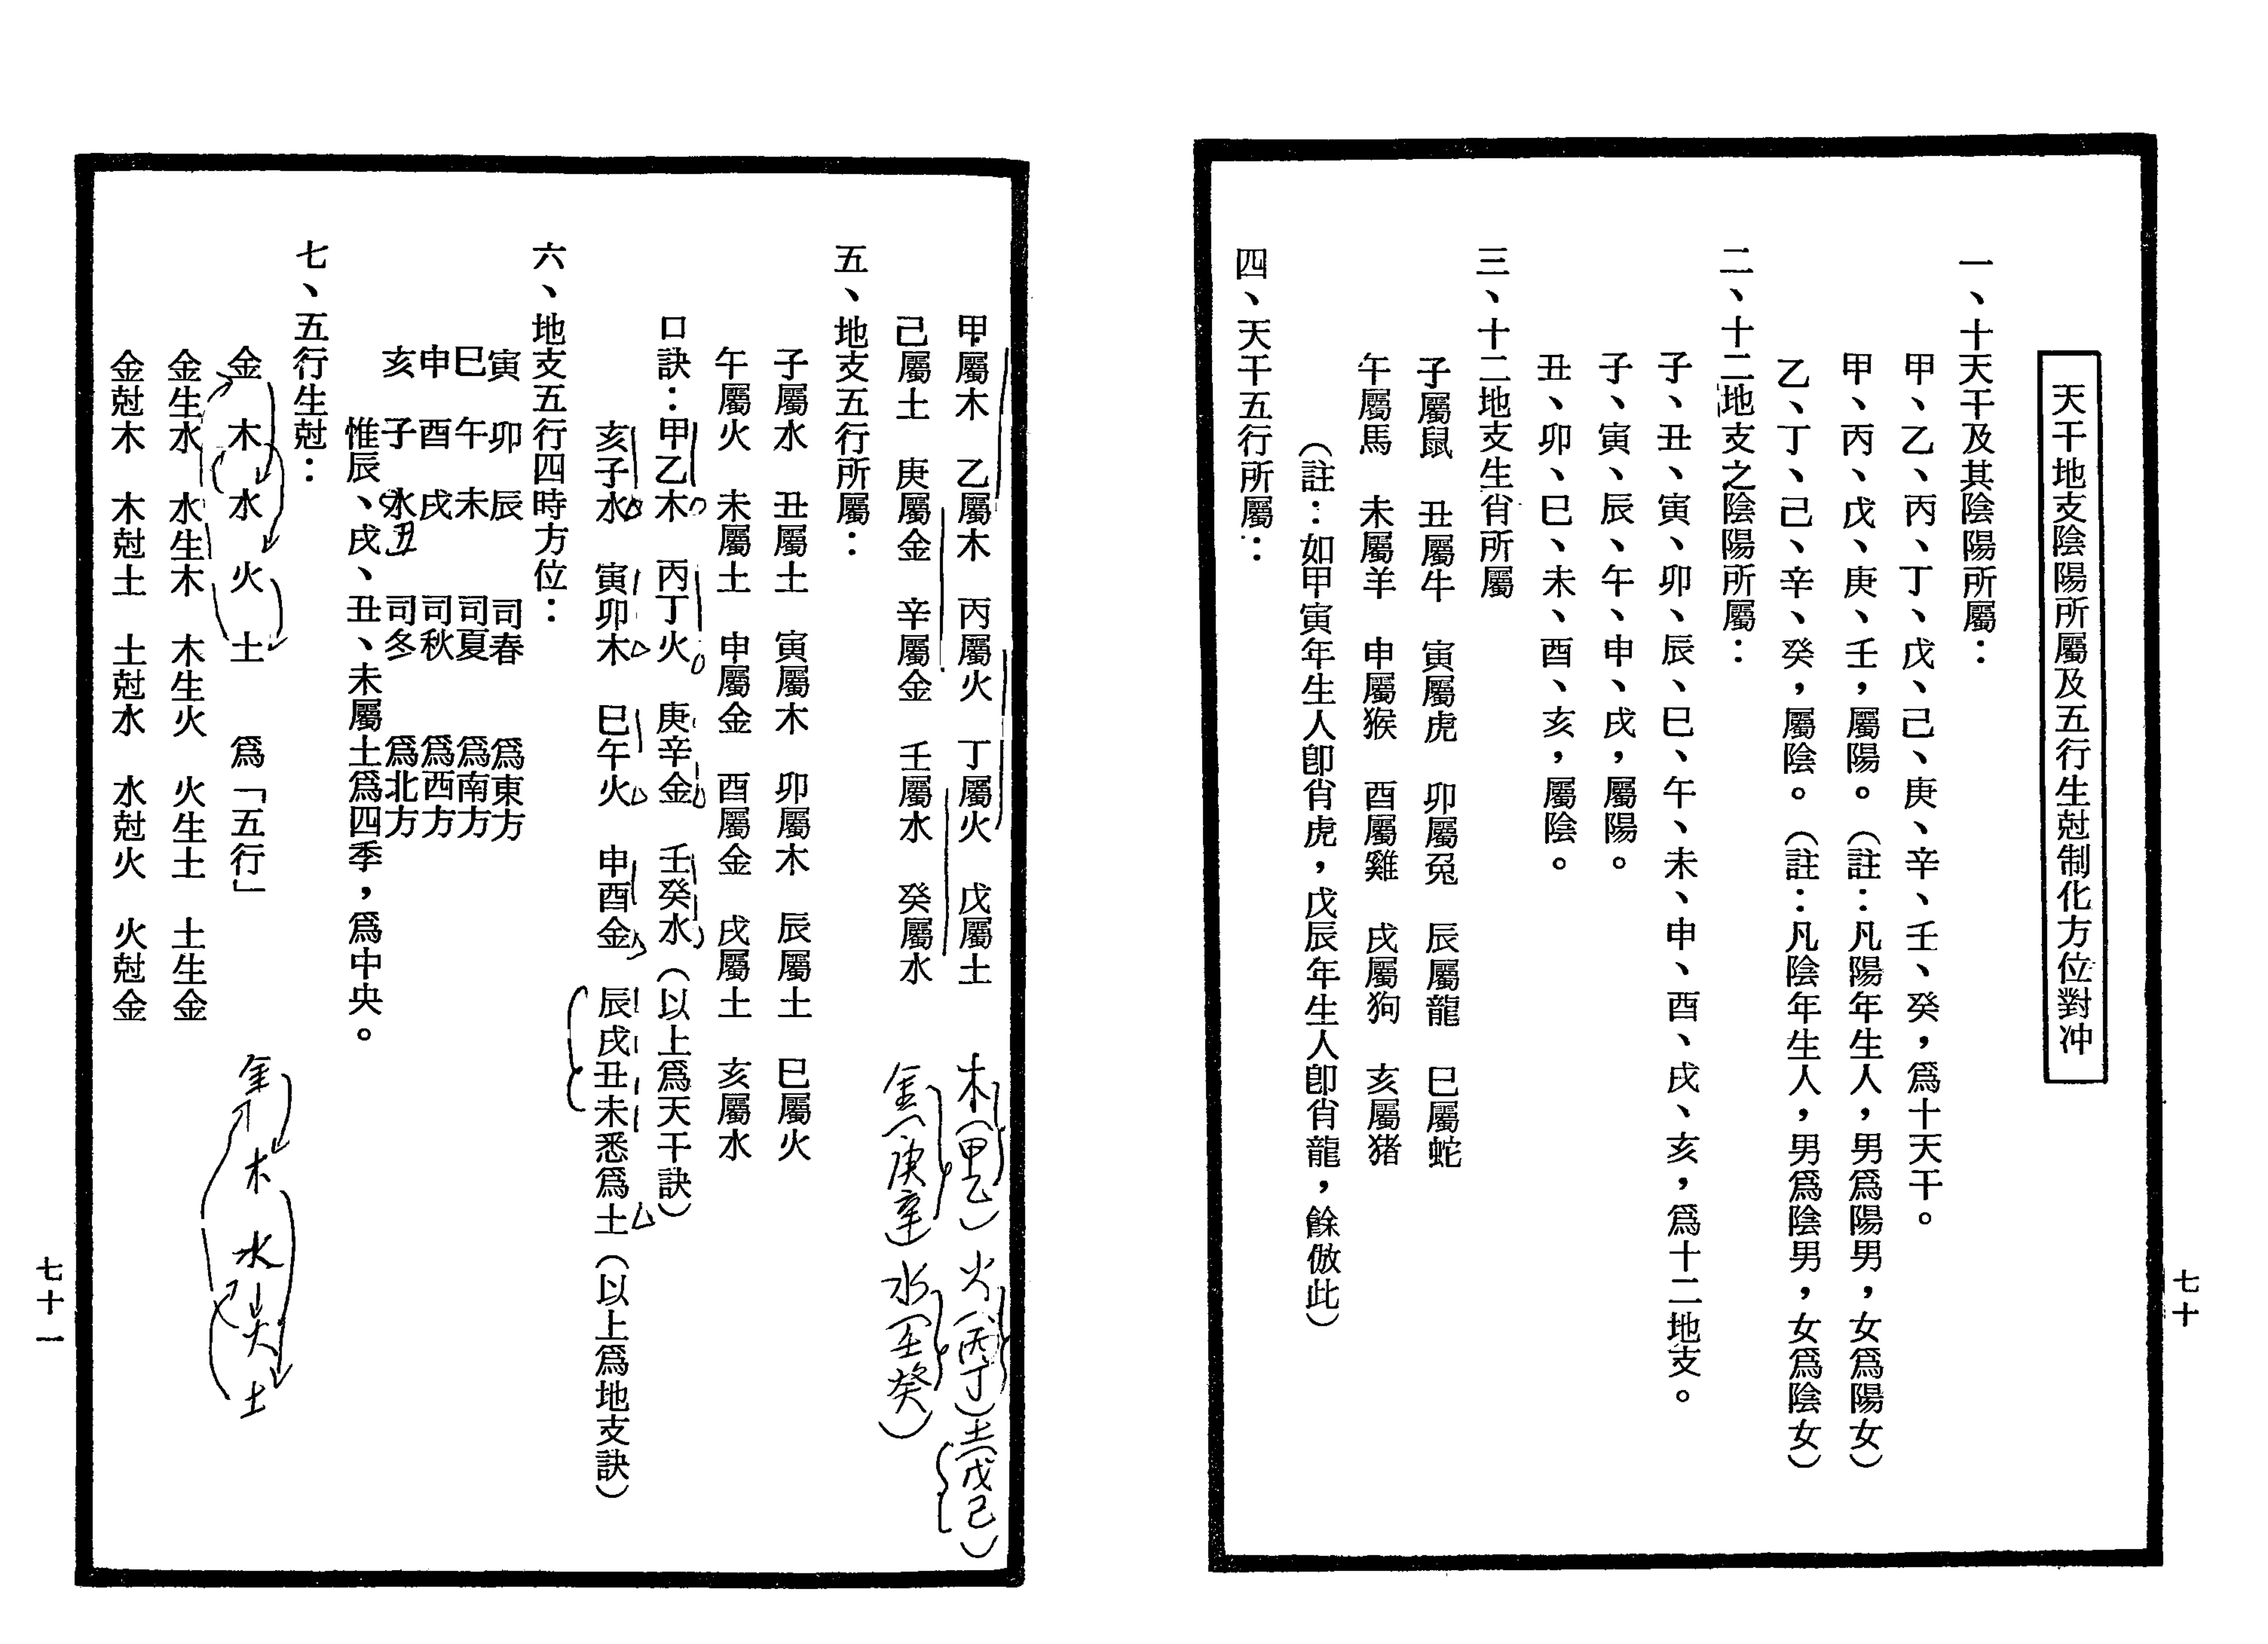 天干地支陰陽所屬及五行生尅制化方位對冲
一、十天干及其陰陽所屬：
甲、乙、丙、丁、戊、己、庚、辛、壬、癸，爲十天干。
甲、丙、戊、庚、壬，屬陽。（註：凡陽年生人，男爲陽男，女爲陽女）
乙、丁、己、辛、癸，屬陰。（註：凡陰年生人，男爲陰男，女爲陰女）
二、十二地支之陰陽所屬：
子、丑、寅、卯、辰、巳、午、未、申、酉、戌、亥，爲十二地支。
子、寅、辰、午、申、戌，屬陽。
丑、卯、巳、未、酉、亥，屬陰。
三、十二地支生肖所屬
子屬鼠　丑屬牛　寅屬虎　卯屬兎　辰屬龍　巳屬蛇
午屬馬　未屬羊　申屬猴　酉屬雞　戌屬狗　亥屬猪
（註：如甲寅年生人卽肖虎，戊辰年生人卽肖龍，餘倣此）
四、天干五行所屬：
七十
甲屬木　乙屬木　丙屬火　丁屬火　戊屬土　木（甲乙）火（丙丁）土（戊己）
己屬土　庚屬金　辛屬金　壬屬水　癸屬水　金（庚辛）水（壬癸）
五、地支五行所屬：
子屬水　丑屬土　寅屬木　卯屬木　辰屬土　巳屬火
午屬火　未屬土　申屬金　酉屬金　戌屬土　亥屬水
口訣：甲乙木　丙丁火　庚辛金　壬癸水（以上爲天干訣）
亥子水　寅卯木　巳午火　申酉金　辰戌丑未悉爲土（以上爲地支訣）
六、地支五行四時方位：
寅　卯　辰　司春　爲東方
巳　午　未　司夏　爲南方
申　酉　戌　司秋　爲西方
亥　子　水丑　司冬　爲北方
惟辰、戌、丑、未屬土爲四季，爲中央。
七、五行生尅：
金　木　水　火　土　爲「五行」　金　木　水　火　土
金生水　水生木　木生火　火生土　土生金
金尅木　木尅土　土尅水　水尅火　火尅金
七十一